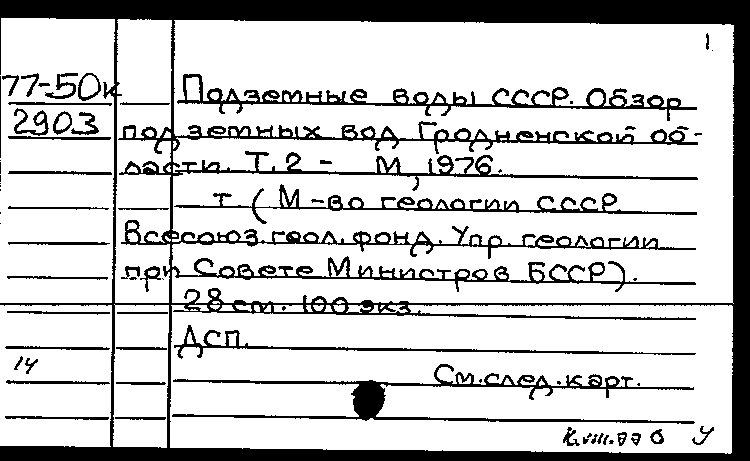 1
77-50к Подземные воды СССР. Обзор
2903 подземных вод Гродненской об-
ласти. Т. 2 - М, 1976.
т (М-во геологии СССР
Всесоюз. геол. фонд. Упр. геологии
при Совете Министров БССР).
28 см. 100 экз.
ДСП.
14
См. след. карт.
У